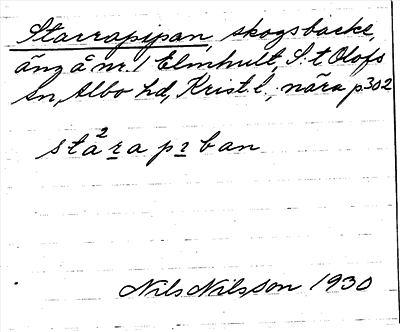 Starrapipan, skogsbacke,
äng å nr. 1 Elmhult, S:t Olofs
sn, Albo hd, Krist. l., nära p302
sta²rapıban
Nils Nilsson 1930